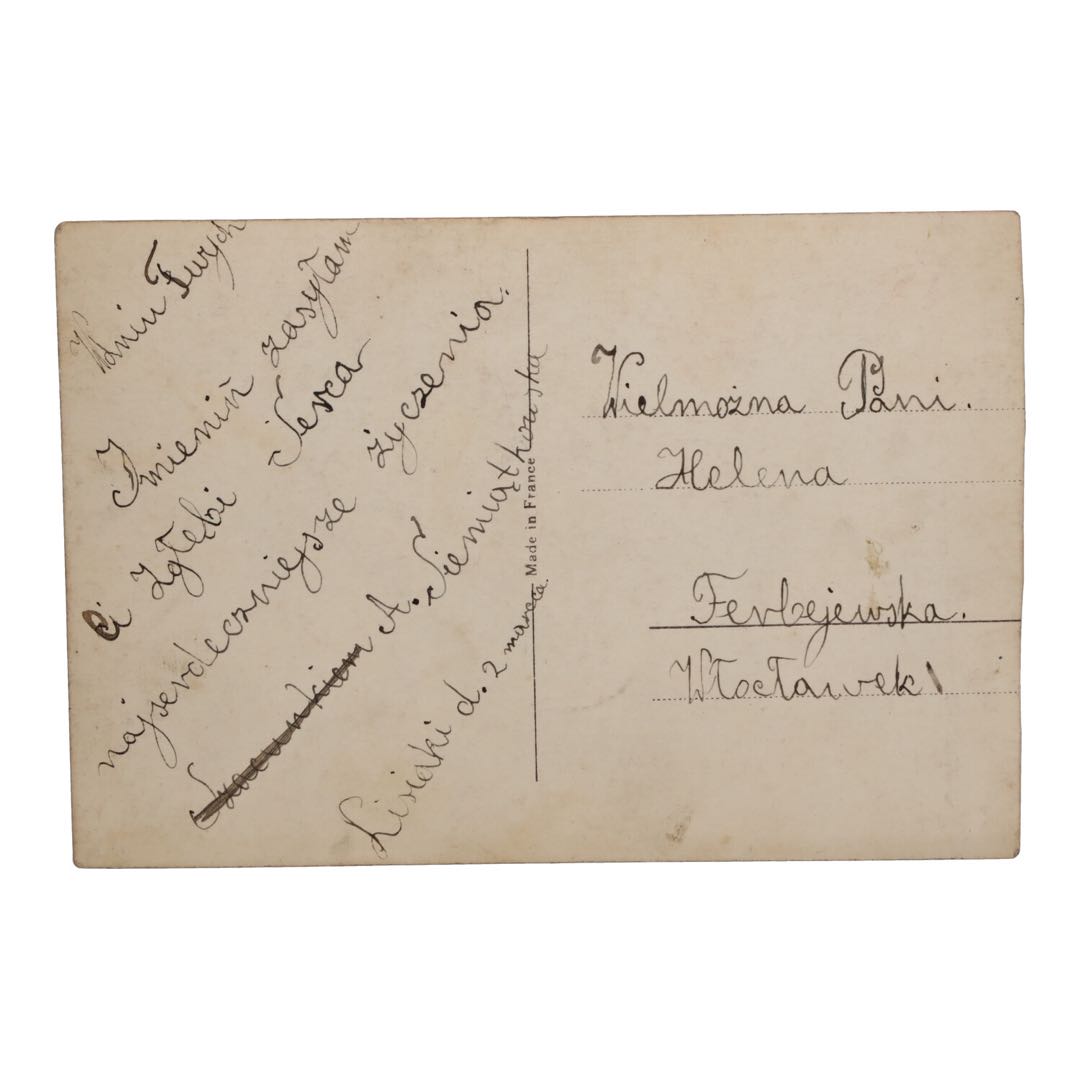 W dniu Twych
Imienin zasyłam
Ci z głębi Serca
najserdeczniejsze życzenia.
A. Siemiątkowska
d. 2 marca.
Made in France
Wielmożna Pani.
Helena
Ferbejewska.
Włocławek